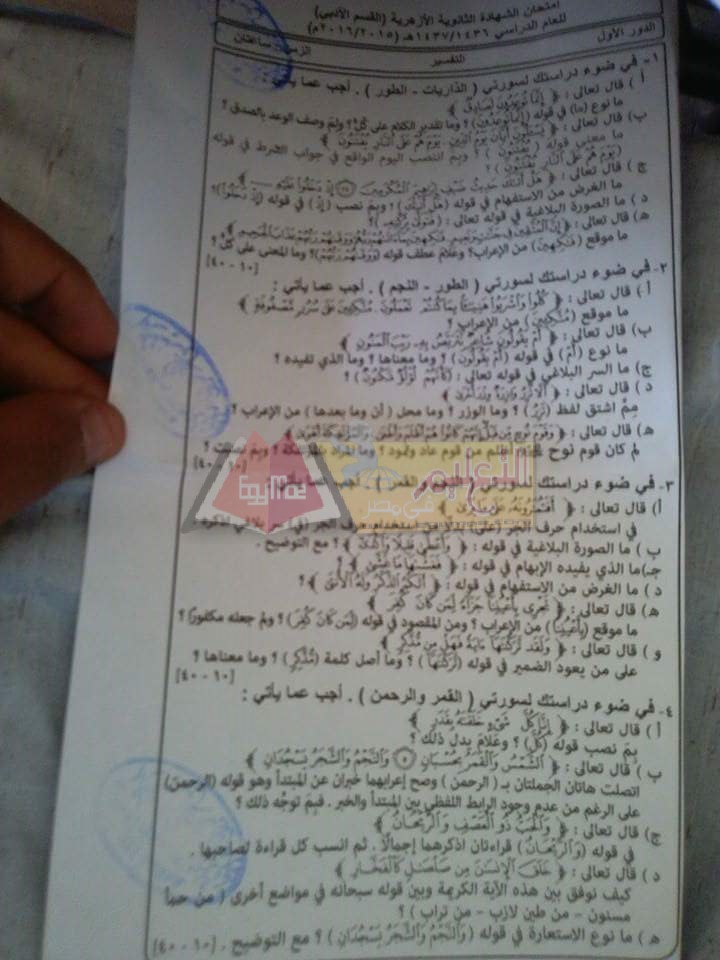 امتحان الشهادة الثانوية الأزهرية (القسم الأدبي)
للعام الدراسي ١٤٣٧/١٤٣٦هـ (٢٠١٦/٢٠١٥م)
الدور الأول التفسير الزمن ساعتان
١- في ضوء دراستك لسورتي ( الذاريات - الطور ) . أجب عما يأتي :
أ ) قال تعالى : ﴿ إِنَّمَا تُوعَدُونَ لَصَادِقٌ ﴾
ما نوع (ما) في قوله (إنما توعدون)؟ وما تقدير الكلام على كلٍّ؟ ولم وصف الوعد بالصدق ؟
ب) قال تعالى : ﴿ يَسْأَلُونَ أَيَّانَ يَوْمُ الدِّينِ يَوْمَ هُمْ عَلَى النَّارِ يُفْتَنُونَ ﴾
ما معنى قوله ( يفتنون ) ؟ وبم انتصب اليوم الواقع في جواب الشرط في قوله
(يَوْمَ هُمْ عَلَى النَّارِ يُفْتَنُونَ) ؟
ج ) قال تعالى : ﴿ هَلْ أَتَاكَ حَدِيثُ ضَيْفِ إِبْرَاهِيمَ الْمُكْرَمِينَ إِذْ دَخَلُوا عَلَيْهِ ﴾
ما الغرض من الاستفهام في قوله (هَلْ أَتَاكَ) ؟ وبم نصب ( إِذْ ) في قوله (إِذْ دَخَلُوا)؟
د ) ما الصورة البلاغية في قوله تعالى :
هـ) قال تعالى : ﴿ إِنَّ الْمُتَّقِينَ فِي جَنَّاتٍ وَنَعِيمٍ فَاكِهِينَ بِمَا آتَاهُمْ رَبُّهُمْ وَوَقَاهُمْ رَبُّهُمْ عَذَابَ الْجَحِيمِ ﴾
ما موقع (فَاكِهِينَ) من الإعراب؟ وعلام عطف قوله (وَوَقَاهُمْ رَبُّهُمْ)؟ وما المعنى على كلٍّ؟
[١٠ - ٤٠]
٢- في ضوء دراستك لسورتي ( الطور - النجم ) . أجب عما يأتي :
أ ) قال تعالى : ﴿ كُلُوا وَاشْرَبُوا هَنِيئًا بِمَا كُنْتُمْ تَعْمَلُونَ مُتَّكِئِينَ عَلَى سُرُرٍ مَصْفُوفَةٍ ﴾
ما موقع (مُتَّكِئِينَ) من الإعراب ؟
ب) قال تعالى : ﴿ أَمْ يَقُولُونَ شَاعِرٌ نَتَرَبَّصُ بِهِ رَيْبَ الْمَنُونِ ﴾
ما نوع (أَمْ) في قوله (أَمْ يَقُولُونَ) ؟ وما معناها ؟ وما الذي تفيده ؟
ج) ما السر البلاغي في قوله تعالى : (كَأَنَّهُمْ لُؤْلُؤٌ مَكْنُونٌ) ؟
د ) قال تعالى : ﴿ أَلَّا تَزِرُ وَازِرَةٌ وِزْرَ أُخْرَى ﴾
مِمَّ اشتق لفظ (تَزِرُ) ؟ وما الوزر ؟ وما محل ( أن وما بعدها ) من الإعراب ؟
هـ) قال تعالى : ﴿ وَقَوْمَ نُوحٍ مِنْ قَبْلُ إِنَّهُمْ كَانُوا هُمْ أَظْلَمَ وَأَطْغَى وَالْمُؤْتَفِكَةَ أَهْوَى ﴾
لم كان قوم نوح أظلم من قوم عاد وثمود ؟ وما المراد بالمؤتفكة ؟ وبم نصبت ؟
[١٠ - ٤٠]
التعليم في مصر
٣- في ضوء دراستك لسورتي ( النجم و القمر ) . أجب عما يأتي :
أ) قال تعالى : ﴿ أَفَتُمَارُونَهُ عَلَى مَا يَرَى ﴾
في استخدام حرف الجر (على) بدلا من استخدام حرف الجر (في) سر بلاغي اذكره .
ب ) ما الصورة البلاغية في قوله : ﴿ وَأَعْطَى قَلِيلًا وَأَكْدَى ﴾ ؟ مع التوضيح .
جـ)ما الذي يفيده الإبهام في قوله : ﴿ فَغَشَّاهَا مَا غَشَّى ﴾ ؟
د ) ما الغرض من الاستفهام في قوله : ﴿ أَلَكُمُ الذَّكَرُ وَلَهُ الْأُنْثَى ﴾ ؟
هـ ) قال تعالى : ﴿ تَجْرِي بِأَعْيُنِنَا جَزَاءً لِمَنْ كَانَ كُفِرَ ﴾
ما موقع (بِأَعْيُنِنَا) من الإعراب ؟ ومن المقصود في قوله (لِمَنْ كَانَ كُفِرَ) ؟ ولم جعله مكفورًا ؟
و ) قال تعالى : ﴿ وَلَقَدْ تَرَكْنَاهَا آيَةً فَهَلْ مِنْ مُدَّكِرٍ ﴾
على من يعود الضمير في قوله (تَرَكْنَاهَا) ؟ وما أصل كلمة (مُدَّكِرٍ) ؟ وما معناها ؟
[١٠ - ٤٠]
٤- في ضوء دراستك لسورتي ( القمر والرحمن ) . أجب عما يأتي :
أ ) قال تعالى : ﴿ إِنَّا كُلَّ شَيْءٍ خَلَقْنَاهُ بِقَدَرٍ ﴾
بِمَ نصب قوله (كُلَّ) ؟ وعلام يدل ذلك ؟
ب ) قال تعالى : ﴿ الشَّمْسُ وَالْقَمَرُ بِحُسْبَانٍ وَالنَّجْمُ وَالشَّجَرُ يَسْجُدَانِ ﴾
اتصلت هاتان الجملتان بـ ( الرحمن ) وصح إعرابهما خبران عن المبتدأ وهو قوله (الرحمن)
على الرغم من عدم وجود الرابط اللفظي بين المبتدأ والخبر . فبِمَ توجِّه ذلك ؟
ج) قال تعالى : ﴿ وَالْحَبُّ ذُو الْعَصْفِ وَالرَّيْحَانُ ﴾
في قوله (وَالرَّيْحَانُ) قراءتان اذكرهما إجمالًا . ثم انسب كل قراءة لصاحبها .
د ) قال تعالى : ﴿ خَلَقَ الْإِنْسَانَ مِنْ صَلْصَالٍ كَالْفَخَّارِ ﴾
كيف نوفق بين هذه الآية الكريمة وبين قوله سبحانه في مواضع أخرى ( من حمأ
مسنون - من طين لازب - من تراب ) ؟
هـ ) ما نوع الاستعارة في قوله (وَالنَّجْمُ وَالشَّجَرُ يَسْجُدَانِ) ؟ مع التوضيح . [١٠ - ٤٠]